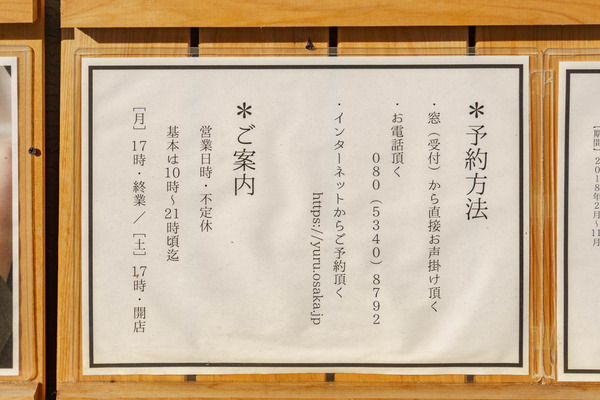 ＊予約方法
・窓（受付）から直接お声掛け頂く
・お電話頂く
080（5340）8792
・インターネットからご予約頂く
https://yuru.osaka.jp
＊ご案内
営業日時・不定休
基本は10時〜21時頃迄
［月］17時・終業／［土］17時・開店
［期間］2018年2月〜11月